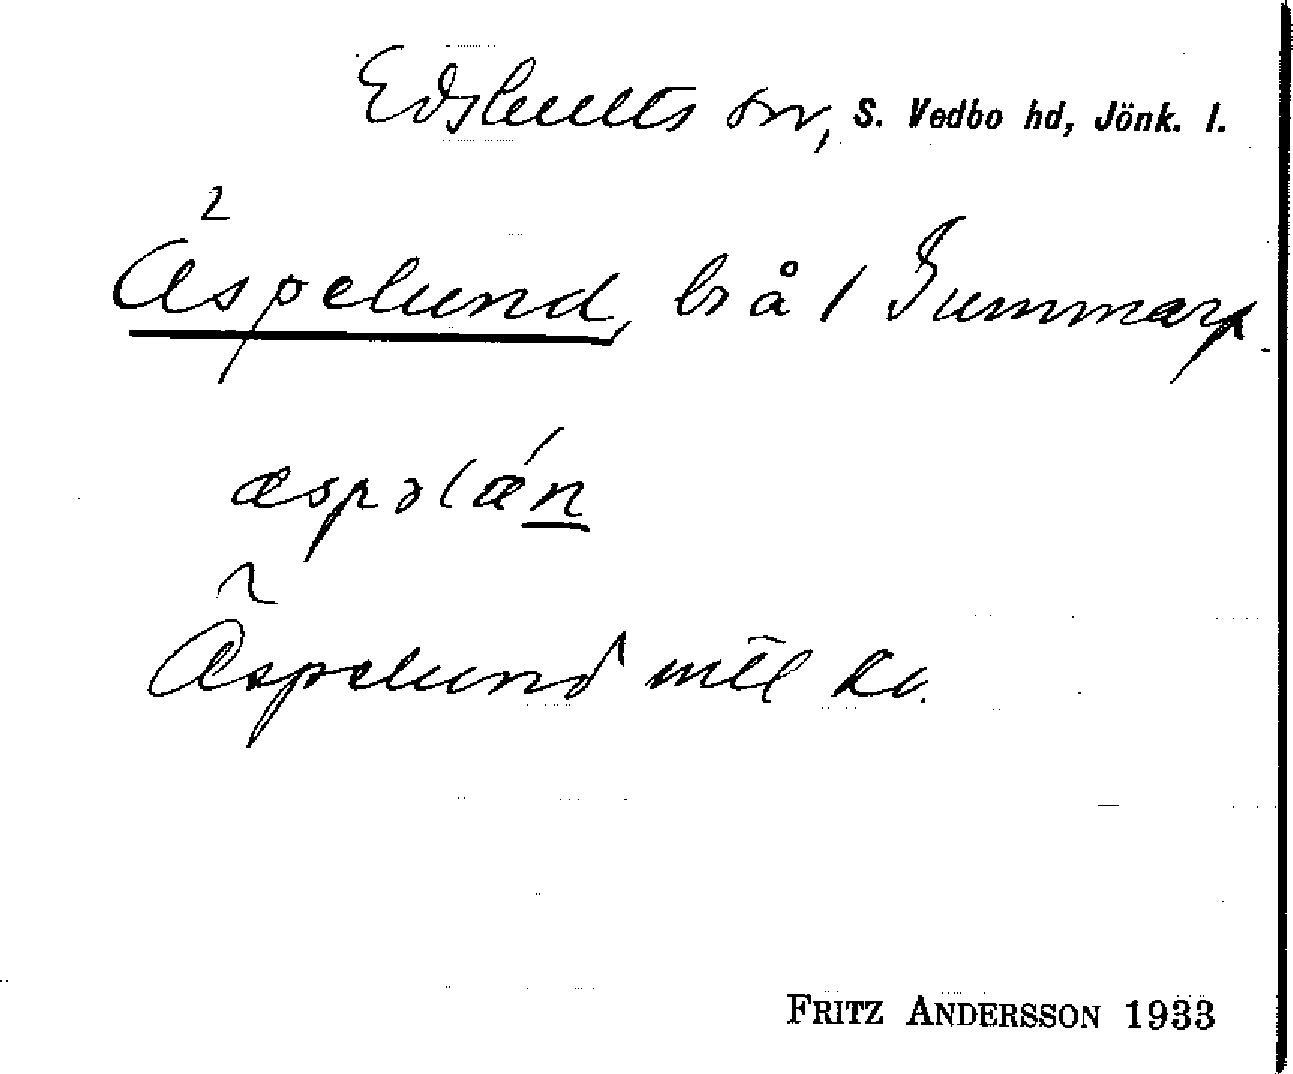 Edshults sn, S. Vedbo hd, Jönk. l.
2
Äspelund, brå / Gummarp
æspəlǽn
2
Äspelund mtl ka.
FRITZ ANDERSSON 1933